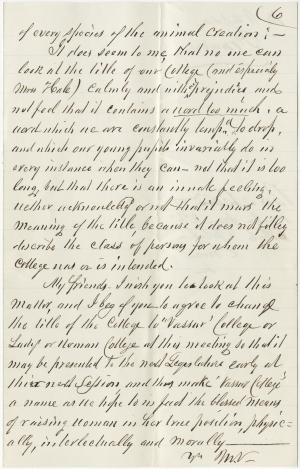 6
of every species of the animal creation:—
It does seem to me, that no one can
look at the title of our College (and especially
Mrs Hale) calmly and without prejudice and
not feel that it contains a word too much, a
word which we are constantly tempd to drop,
and which our young pupils invariably do in
every instance when they can— not that it is too
long, but that there is an innate feeling,
wether acknowledgd or not that it mars the
meaning of the title, because it does not fully
describe the class of persons for whom the
College was or is intended.
My friends I wish you to look at this
matter, and I beg of you to agree to change
the title of the College to "Vassar College or
Lady or Woman College at this meeting so that it
may be presented to the next Legislature early at
their next Session and thus make Vassar College
a name as we hope to in fact the blessed means
of raising woman in her true position, physic-
ally, intellectually and morally—